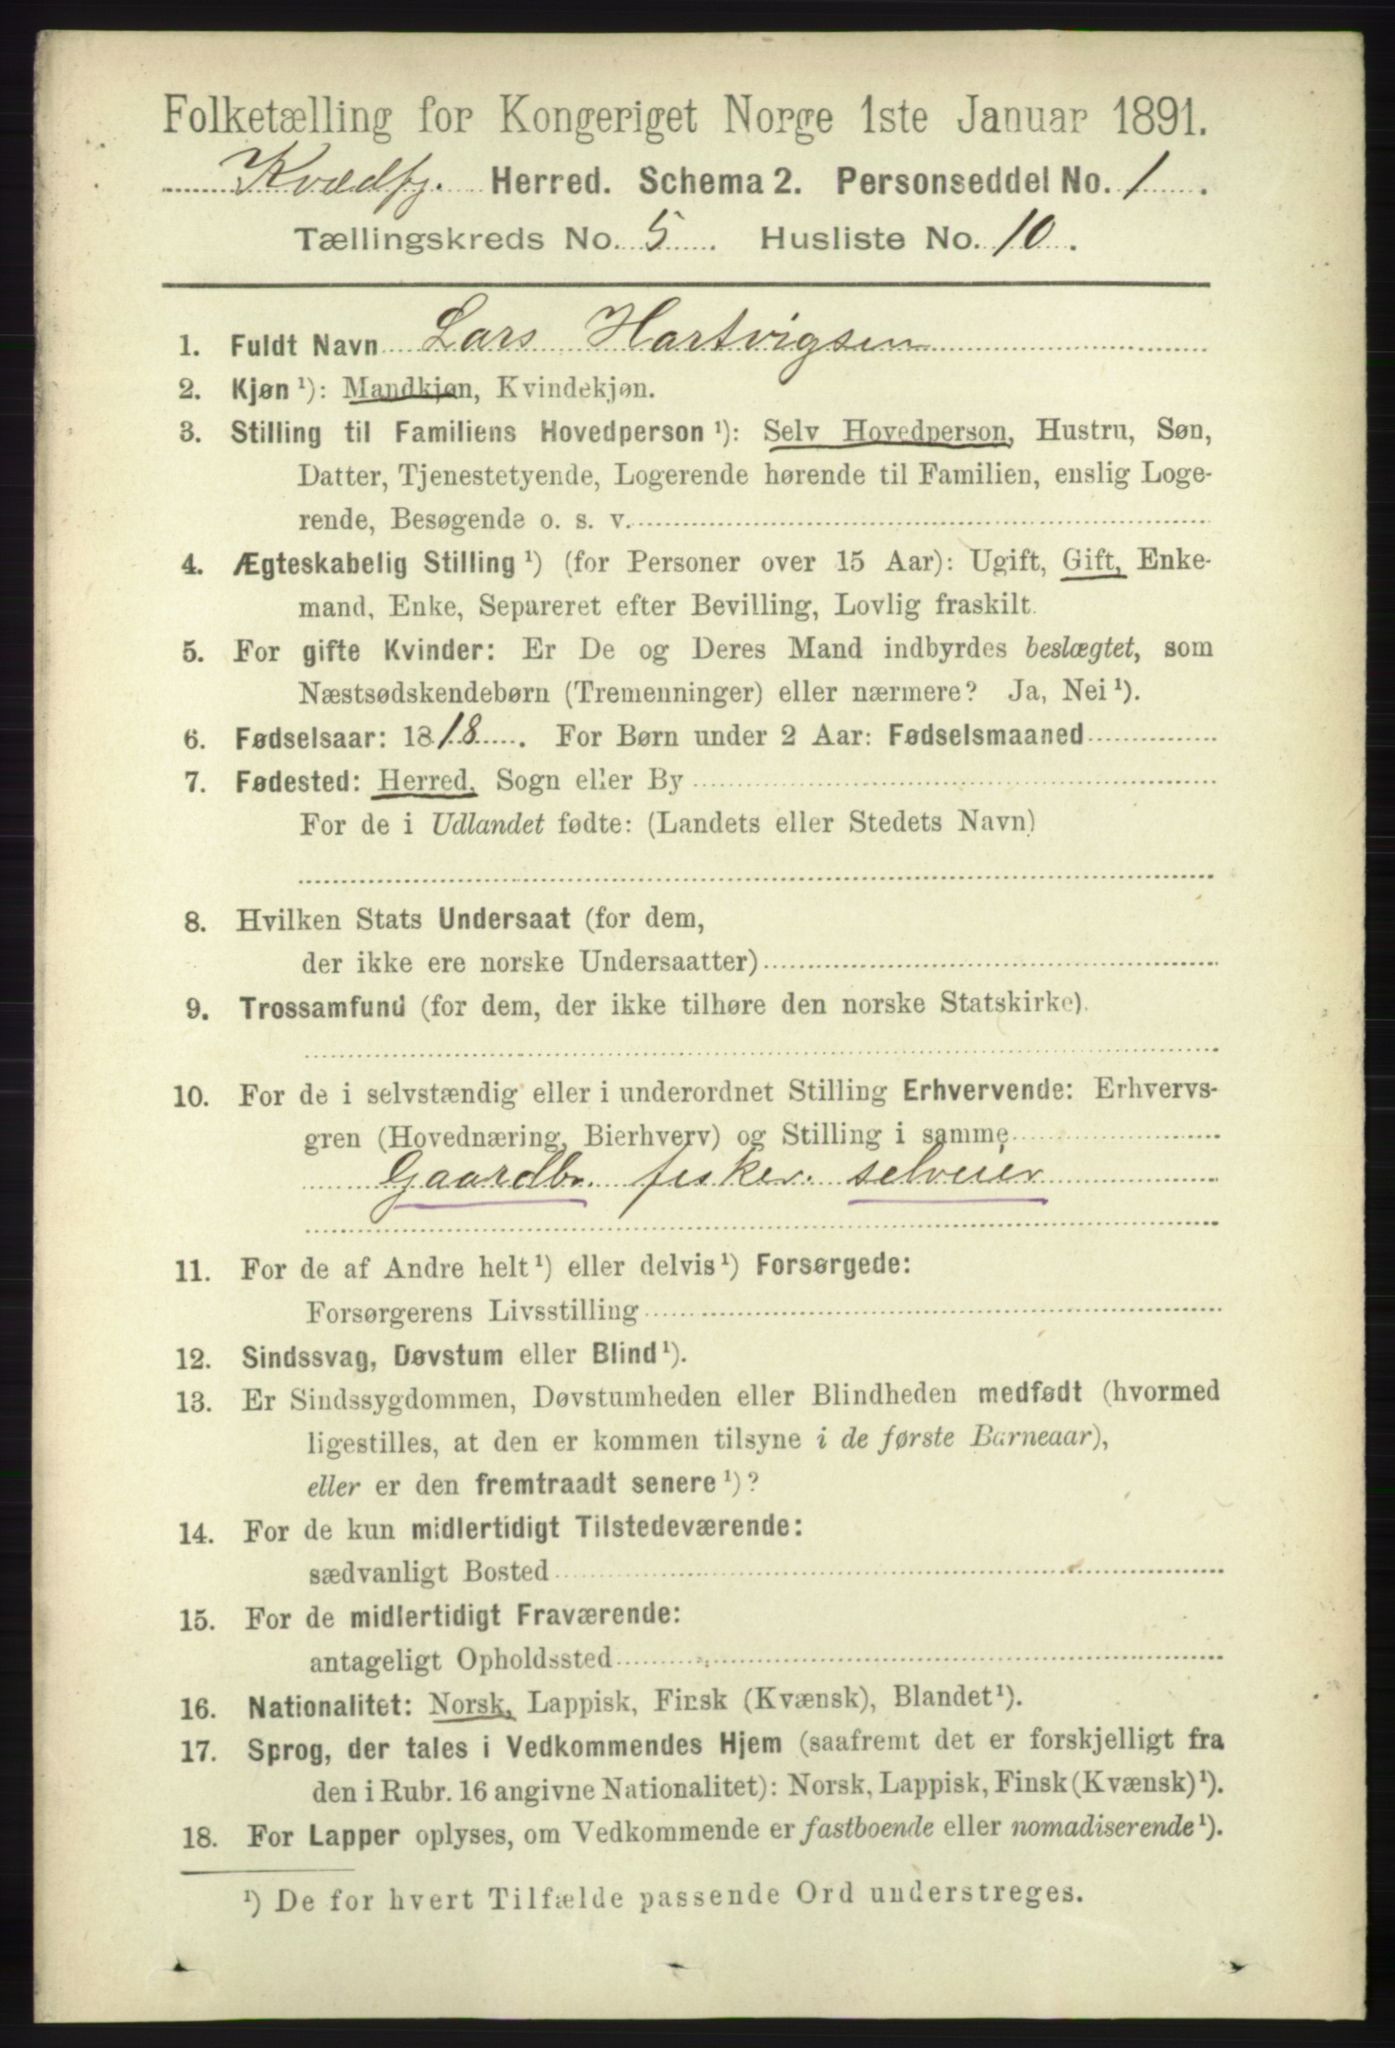 Folketælling for Kongeriget Norge 1ste Januar 1891.
Kvædfj. Herred. Schema 2. Personseddel No. 1.
Tællingskreds No. 5. Husliste No. 10.
1. Fuldt Navn Lars Hartvigsen
2. Kjøn ¹): Mandkjøn, Kvindekjøn.
3. Stilling til Familiens Hovedperson ¹): Selv Hovedperson, Hustru, Søn,
Datter, Tjenestetyende, Logerende hørende til Familien, enslig Loge-
rende, Besøgende o. s. v.
4. Ægteskabelig Stilling ¹) (for Personer over 15 Aar): Ugift, Gift, Enke-
mand, Enke, Separeret efter Bevilling, Lovlig fraskilt.
5. For gifte Kvinder: Er De og Deres Mand indbyrdes beslægtet, som
Næstsødskendebørn (Tremenninger) eller nærmere? Ja, Nei ¹).
6. Fødselsaar: 1818. For Børn under 2 Aar: Fødselsmaaned
7. Fødested: Herred, Sogn eller By
For de i Udlandet fødte: (Landets eller Stedets Navn)
8. Hvilken Stats Undersaat (for dem,
der ikke ere norske Undersaatter)
9. Trossamfund (for dem, der ikke tilhøre den norske Statskirke).
10. For de i selvstændig eller i underordnet Stilling Erhvervende: Erhvervs-
gren (Hovednæring, Bierhverv) og Stilling i samme
Gaardbr. fisker. selveier
11. For de af Andre helt ¹) eller delvis ¹) Forsørgede:
Forsørgerens Livsstilling
12. Sindssvag, Døvstum eller Blind ¹).
13. Er Sindssygdommen, Døvstumheden eller Blindheden medfødt (hvormed
ligestilles, at den er kommen tilsyne i de første Barneaar),
eller er den fremtraadt senere ¹)?
14. For de kun midlertidigt Tilstedeværende:
sædvanligt Bosted
15. For de midlertidigt Fraværende:
antageligt Opholdssted
16. Nationalitet: Norsk, Lappisk, Finsk (Kvænsk), Blandet ¹).
17. Sprog, der tales i Vedkommendes Hjem (saafremt det er forskjelligt fra
den i Rubr. 16 angivne Nationalitet): Norsk, Lappisk, Finsk (Kvænsk) ¹).
18. For Lapper oplyses, om Vedkommende er fastboende eller nomadiserende ¹).
¹) De for hvert Tilfælde passende Ord understreges.